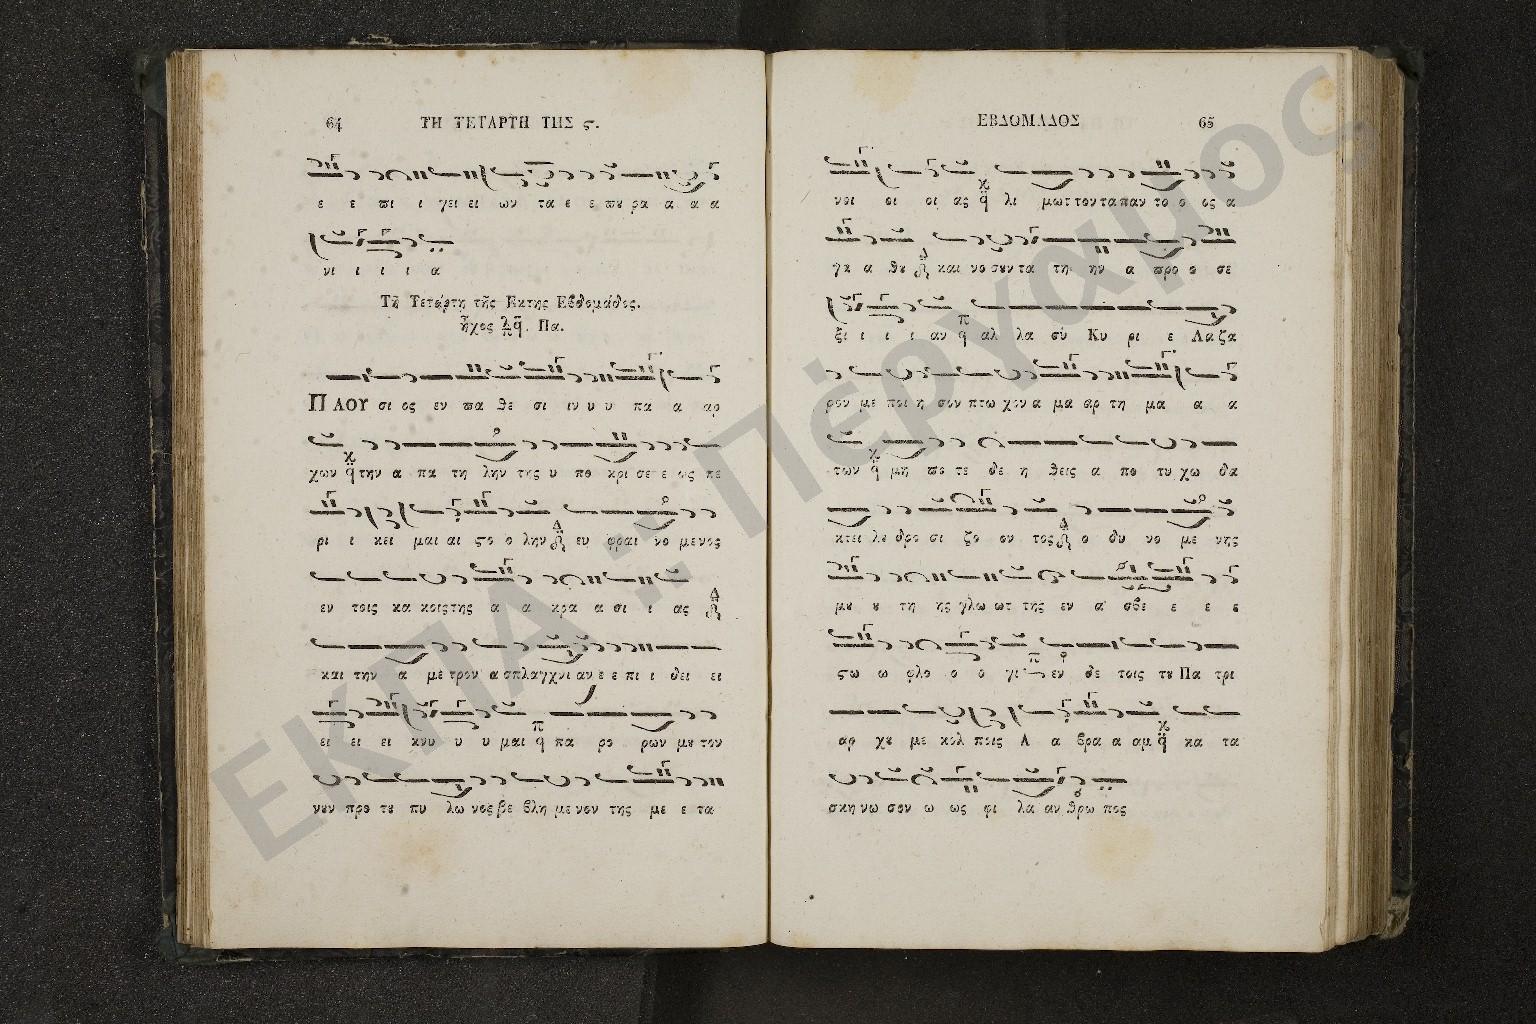 64 ΤΗ ΤΕΤΑΡΤΗ ΤΗΣ ϛ.
ε ε πι ι γει ει ων τα ε ε πȣ ρα α α α
νι ι ι ι α
Τῇ Τετάρτῃ τῆς Εκτης Εβδομάδος.
ἦχος λ π q̈. Πα.
ΠΛΟΥ σι ος εν πα θε σι ιν υ υ πα α αρ
χων την α πα τη λην της υ πο κρι σε ε ε ως πε
ρι ι κει μαι αι ϛο ο λην ευ φραι νο μενος
εν τοις κα κοις της α α κρα α σι ι ας
και την α με τρον α σπλαγχνι αν ε ε πι ι δει ει
ει ει ει κνυ υ υ μαι πα ρο ρων μȣ τον
νουν προ τȣ πυ λω νος βε βλη με νον της με ε τα
ΕΒΔΟΜΑΔΟΣ 65
νοι οι οι ας λι μωτ τον τα παν το ο ος α
γα α θȣ και νο σουν τα τη ην α προ ο σε
ξι ι ι ι αν αλ λα σὺ Κυ ρι ε Λα ζα
ρον με ποι η σον πτω χον α μα αρ τη μα α α
των μη πο τε δε η θεις α πο τυ χω δα
κτυ λȣ δρο σι ζο ον τος ο δυ νο με νης
μȣ ȣ τη ης γλω ωτ της εν α σβε ε ε ε
ϛω ω φλο ο ο γι εν δε τοις τȣ Πα τρι
αρ χȣ με κολ ποις Α α βρα α αμ κα τα
σκη νω σον ω ως φι λα αν θρω πος
ΕΚΠΑ :: Πέργαμος